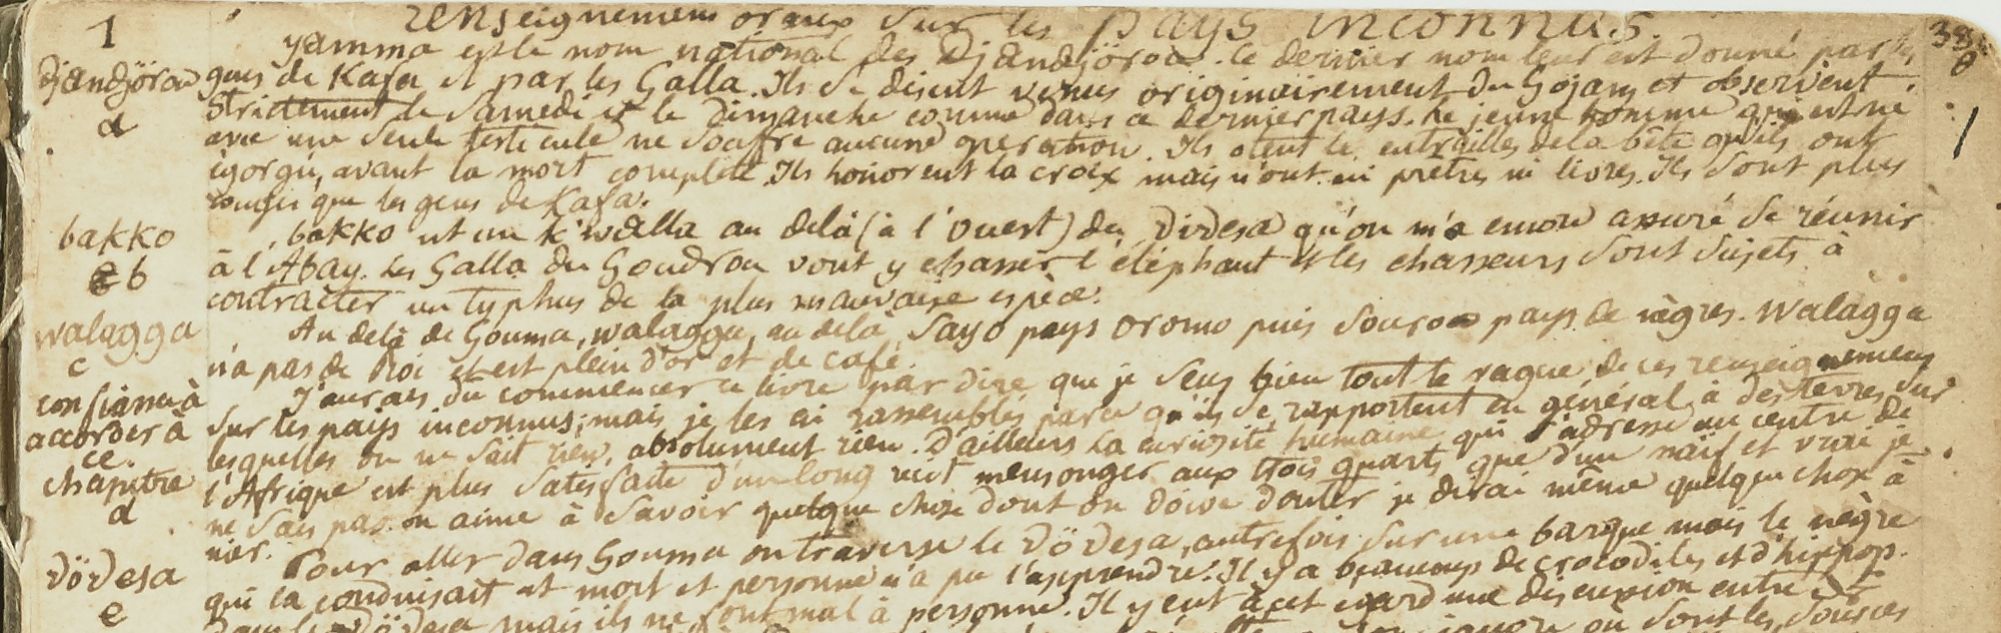 1
renseignemens oraux sur les pays inconnus.
338
djandjöroa
a
yamma est le nom national des Djandjöroa. Ce dernier nom leur est donné par les
gens de Kafa et par les Galla. Ils se disent venus originairement du Gojam et observent
strictement le Samedi et le Dimanche comme dans ce dernier pays. Le jeune homme qui est né
avec une seule testicule ne souffre aucune operation. Ils otent les entrailles de la bête qu'ils ont
égorgé, avant la mort complète. Ils honorent la croix mais n'ont ni prêtres ni livres. Ils sont plus
rouges que les gens de Kafa.
1
bakko
b
bakko est un k'walla au delà (à l'ouest) du Didesa qu'on m'a encore assuré se réunir
à l'Abay. Les Galla du Goudrou vont y chasser l'éléphant et les chasseurs sont sujets à
contracter un typhus de la plus mauvaise espèce.
walagga
c
Au delà de Gouma, walagga, au delà Sayo pays oromo puis pays de nègres. Walagga
n'a pas de Roi et est plein d'or et de café.
confiance à
accorder à
ce
chapitre
d
J'aurais du commencer ce livre par dire que je sens bien tout le vague de ces renseignemens
sur les pays inconnus; mais je les ai rassemblés parce qu'ils se rapportent en général à des terres sur
lesquelles on ne sait rien, absolument rien. D'ailleurs la curiosité humaine qui s'adresse au centre de
l'Afrique est plus satisfaite d'un long récit mensonger aux trois quarts que d'un naïf et vrai je
ne sais pas. on aime à savoir quelque chose dont on doive douter je dirai même quelque chose à
nier.
dödesa
e
Pour aller dans Gouma on traverse le Dödesa, autrefois sur une barque mais le nègre
qui la conduisait est mort et personne n'a pu l'apprendre. Il y a beaucoup de crocodiles et d'hippop.
dans le Dödesa mais ils ne font mal à personne. Il y eut à cet égard une discussion entre
ou sont les sources